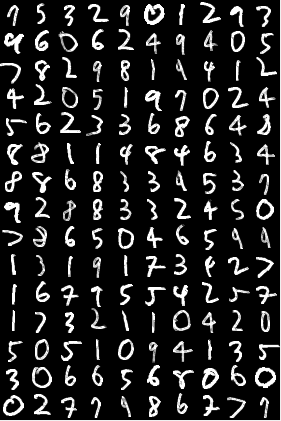 7 5 3 2 9 0 1 2 9 3
9 6 0 6 2 4 9 4 0 5
7 8 2 9 8 1 9 4 1 2
4 2 0 5 1 9 7 0 2 4
5 6 2 3 3 6 8 6 4 8
8 8 1 1 4 8 4 6 3 4
8 8 6 8 3 3 9 5 3 7
9 2 8 8 3 3 2 4 5 0
7 8 6 5 0 4 6 5 9 9
1 3 1 9 1 7 3 4 2 7
1 6 7 9 5 5 4 2 5 7
1 7 3 2 1 1 0 4 2 0
5 0 5 1 0 9 4 1 3 5
3 0 6 6 5 6 8 0 6 0
0 2 7 7 9 8 6 7 7 7